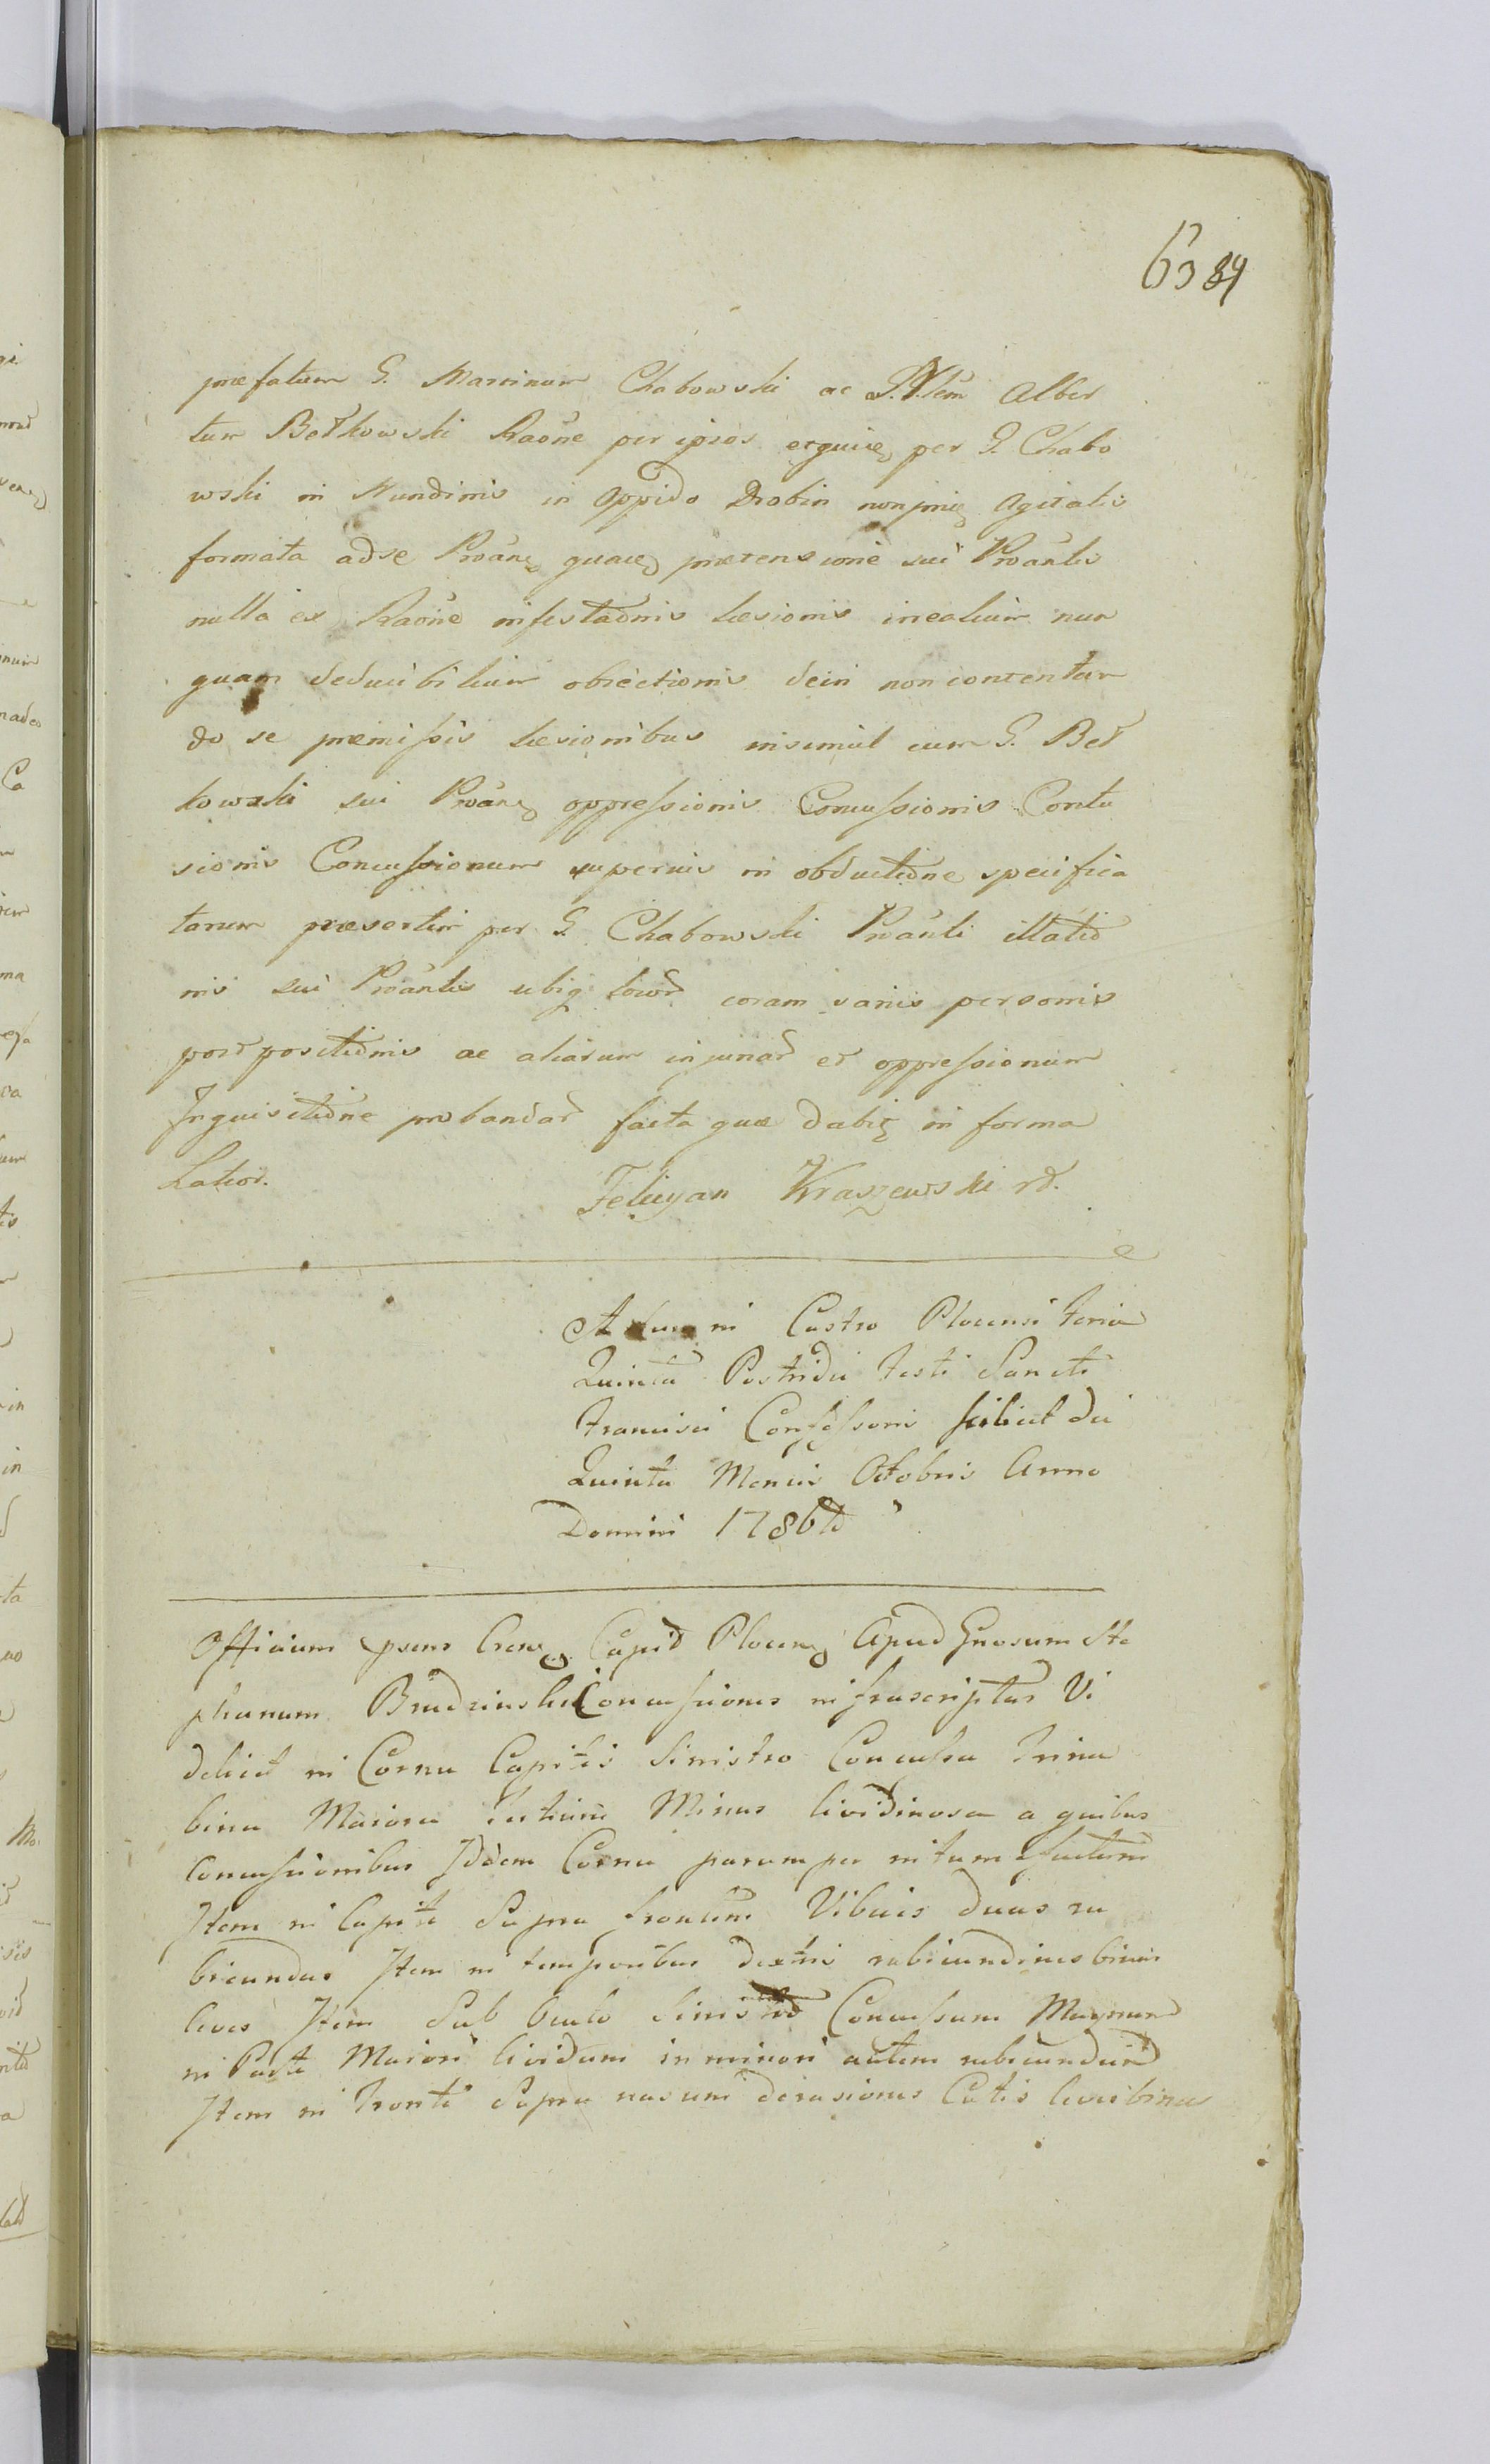 63 84
præfatum G. Marcinum Chabowski ac Alber
tum Betkowski Raōne per ipsos per G. Chabo
wski in Nundinis in Oppido Drobin agitatis
formata adse prætensione sui Proāntis
nulla ex Raōne infestaōnis læsionis nun
quam deducibilium obiectionis dein non contentan
do se præmissis læsionibus insimul cum G. Bet
kowski sui oppressionis Concussionis Contu
sionis Concussionum superius in obductiōne specifica
tarum præsertim per G. Chabowski Proānti illatiō
nis sui Proāntis ubiq coram variis personis
positiōnis ac aliarum injuriar et oppressionum
Inquisitiōne probandar facta quæ dabiᷓ in forma
Latior. Felicyan Kraszewski rd.
Actum in Castro Plocensi Feria
Quinta Postridie Festi Sancti
Francisci Confessoris scilicet die
Quinta Mensis Octobris Anno
Domini 1786to
Officium psens Crense Capit Plocens Apud Gnosum Ste
phanum Brudzinski Concussiones infrascriptas Vi
delicet in Cornu Capitis Sinistro Concussa trina
bina Maiora tertium Minus lividinosa a quibus
Concussionibus Iddem Cornu parumper intumefactum
Item in Capite Supra frontem Vibices duas ru
bicundas Item in temporibus dextris rubicundines binas
leves Item Sub Oculo Sinistro Concussum Magnum
in Parte Maiori lividum in minori autem rubicundum
Item in Fronte Supra nasum derasiones Cutis leves binas